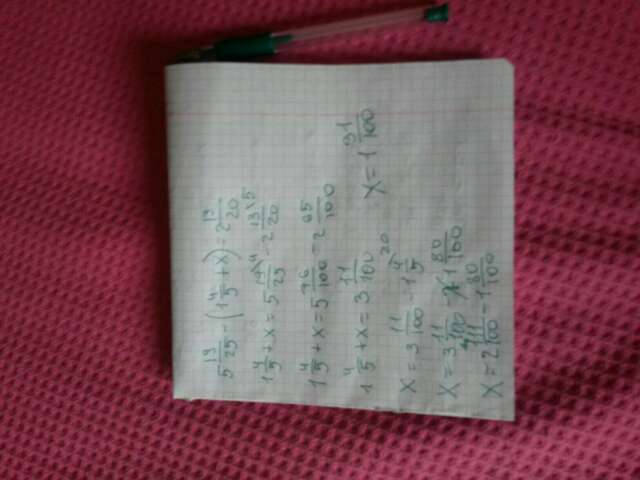 5 19/25 - (1 4/5 + x) = 2 13/20
1 4/5 + x = 5 19/25 - 2 13/20
1 4/5 + x = 5 76/100 - 2 65/100
1 4/5 + x = 3 11/100
x = 3 11/100 - 1 4/5
x = 3 11/100 - 1 80/100
x = 2 111/100 - 1 80/100
x = 1 31/100